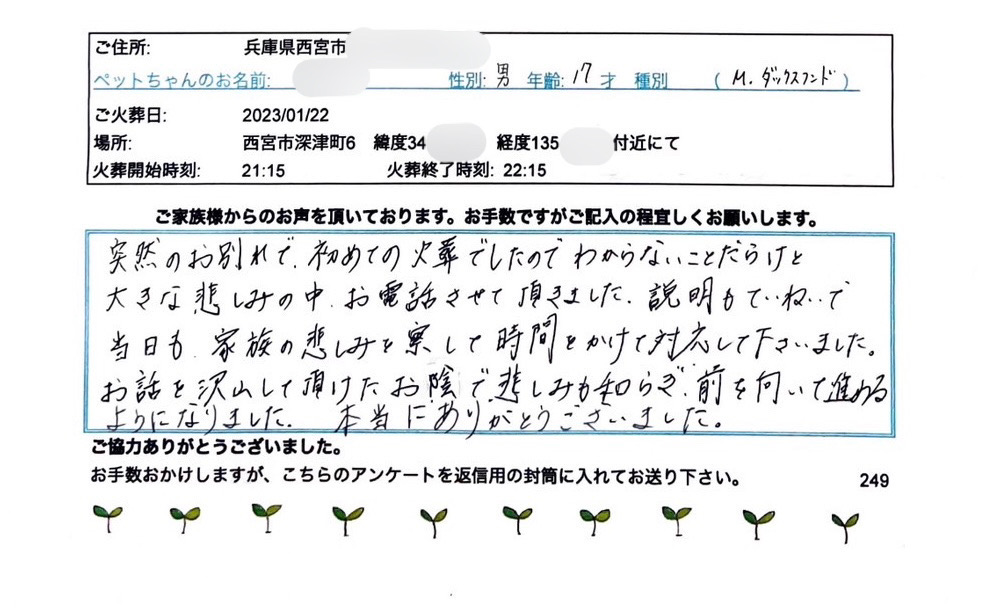 ご住所: 兵庫県西宮市
ペットちゃんのお名前: 性別: 男 年齢: 17 才 種別 ( M.ダックスフンド )
ご火葬日: 2023/01/22
場所: 西宮市深津町6 緯度34 経度135 付近にて
火葬開始時刻: 21:15 火葬終了時刻: 22:15
ご家族様からのお声を頂いております。お手数ですがご記入の程宜しくお願いします。
突然のお別れで、初めての火葬でしたのでわからないことだらけと
大きな悲しみの中、お電話させて頂きました、説明もていねいで
当日も、家族の悲しみを察して時間をかけて対応して下さいました。
お話を沢山して頂けたお陰で悲しみも和らぎ、前を向いて進める
ようになりました。 本当にありがとうございました。
ご協力ありがとうございました。
お手数おかけしますが、こちらのアンケートを返信用の封筒に入れてお送り下さい。 249